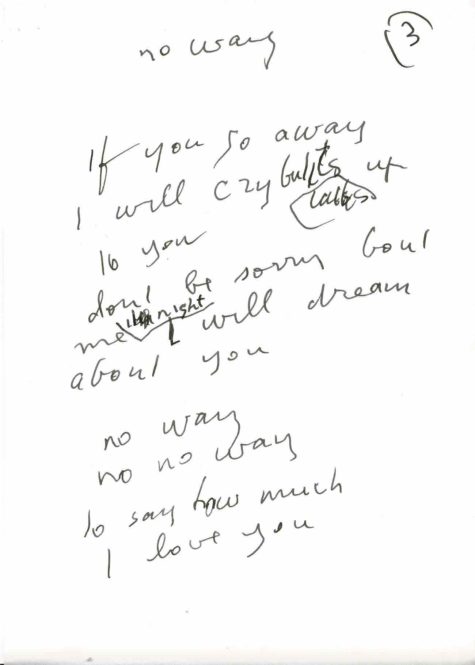 no way
3
If you go away
I will cry but its up
to you
dont be sorry bout
me night I will dream
about you
no way
no no way
to say how much
I love you